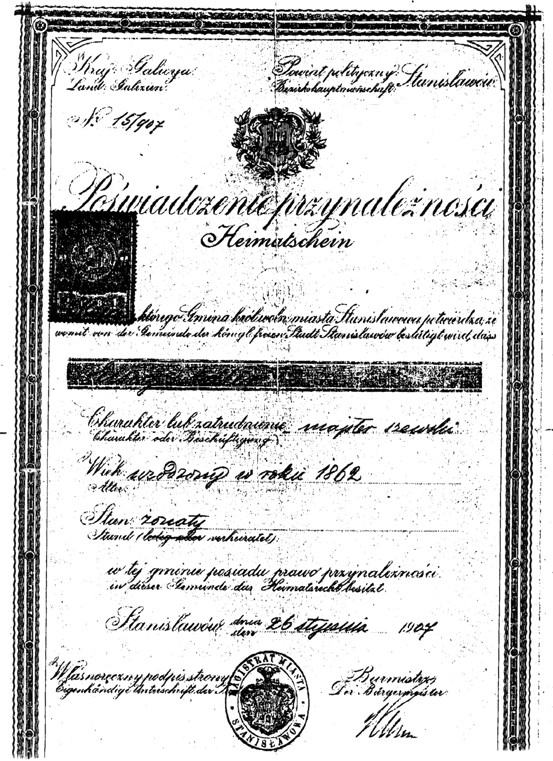 Kraj Galicya. Powiat polityczny Stanisławów.
Land Galizien. Bezirkshauptmannschaft
№ 15/907
Poświadczenie przynależności
Heimatschein
którego Gmina król. woln. miasta Stanisławowa potwierdza, że
womit von der Gemeinde der königl. freien Stadt Stanisławów bestätigt wird, dass
Charakter lub zatrudnienie majster szewski
Charakter oder Beschäftigung
Wiek urodzony w roku 1862
Alter
Stan żonaty
Stand (ledig oder verheiratet)
w tej gminie posiada prawo przynależności.
in dieser Gemeinde das Heimatsrecht besitzt.
Stanisławów dnia 26 stycznia 1907
den
Własnoręczny podpis strony Burmistrz
Eigenhändige Unterschrift der Der Bürgermeister
MAGISTRAT MIASTA
STANISŁAWOWA